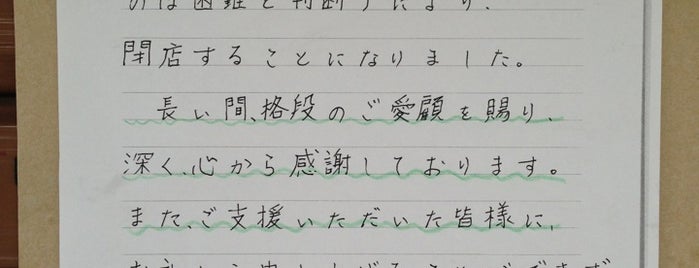 のは困難と判断
閉店することになりました。
長い間、格段のご愛顧を賜り、
深く、心から感謝しております。
また、ご支援いただいた皆様に、